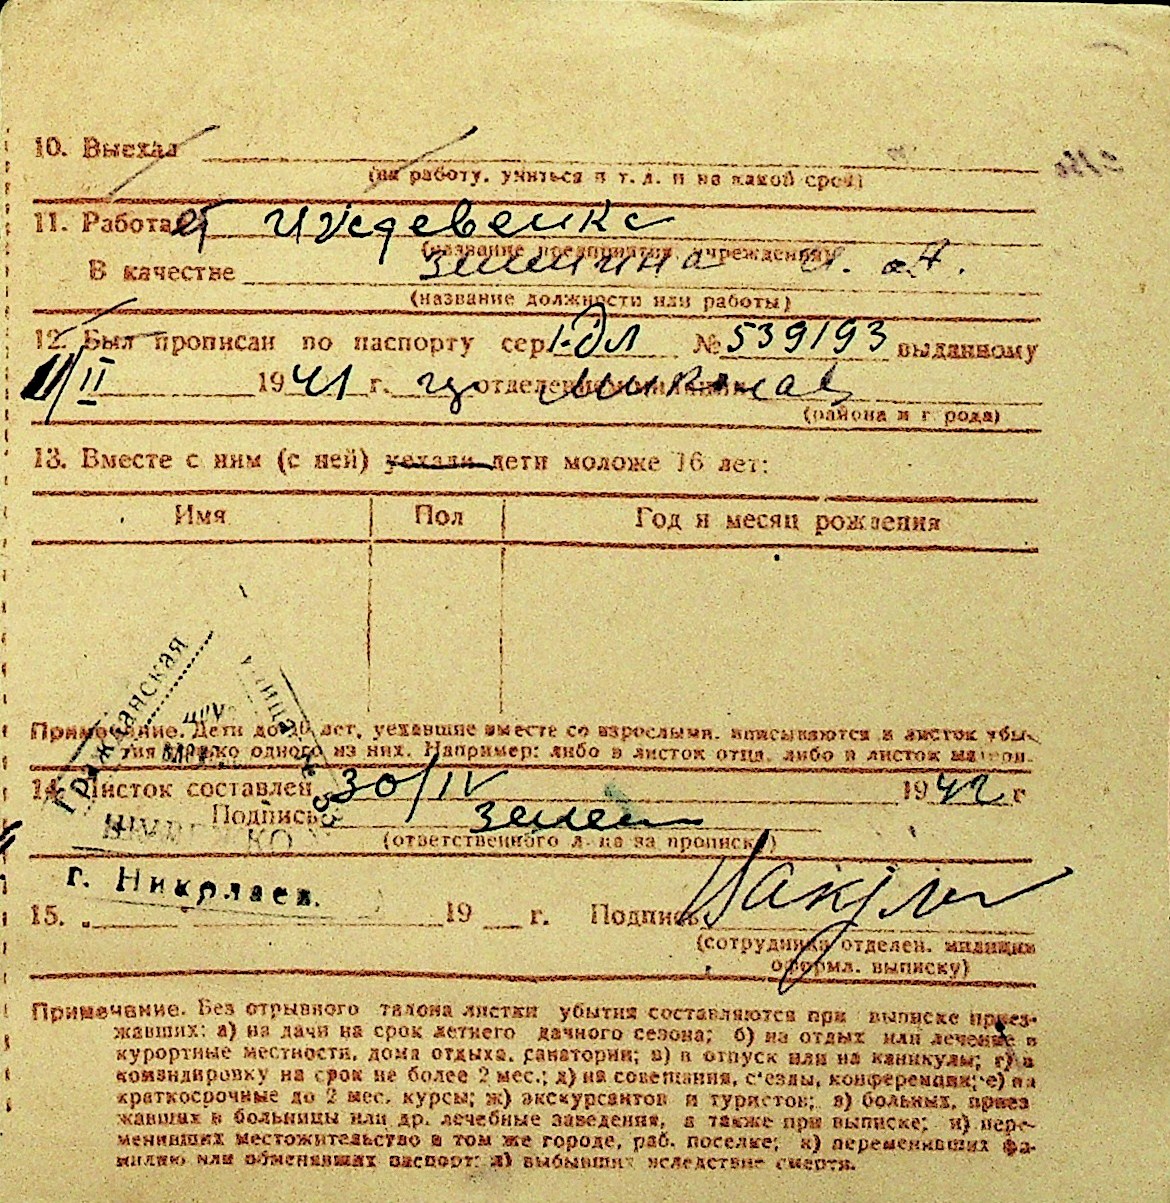 10. Выехал
(на работу, учиться и т. д. и на какой срок)
11. Работает иждевенка
(название предприятия, учреждения)
В качестве
(название должности или работы)
12. Был прописан по паспорту сер. № 539193 выданному
11/II 1941 г. отделением милиции
(района и города)
13. Вместе с ним (с ней) уехали дети моложе 16 лет:
Имя Пол Год и месяц рождения
Примечание. Дети до 16 лет, уехавшие вместе со взрослыми, вписываются в листок убы-
тия только одного из них. Например: либо в листок отца, либо в листок матери.
Гражданская
улица
14. Листок составлен 30/IV 1942 г
Подпись
(ответственного л-ца за прописку)
г. Николаев.
15. 19 г. Подпись
(сотрудника отделен. милиции
оформл. выписку)
Примечание. Без отрывного талона листки убытия составляются при выписке приез-
жавших: а) на дачи на срок летнего дачного сезона; б) на отдых или лечение в
курортные местности, дома отдыха, санатории; в) в отпуск или на каникулы; г) в
командировку на срок не более 2 мес.; д) на совещания, с'езды, конференции; е) на
краткосрочные до 2 мес. курсы; ж) экскурсантов и туристов; з) больных, приез-
жавших в больницы или др. лечебные заведения, а также при выписке; и) пере-
менивших местожительство в том же городе, раб. поселке; к) переменивших фа-
милию или обменявших паспорт; л) выбывших вследствие смерти.